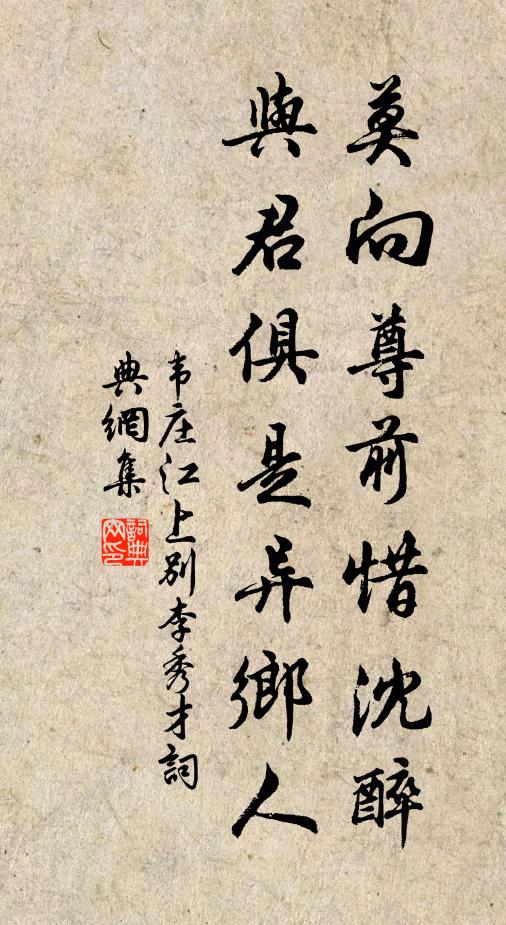 莫向尊前惜沈醉
與君俱是异鄉人
韦庄江上别李秀才詞
典網集
詞典网印